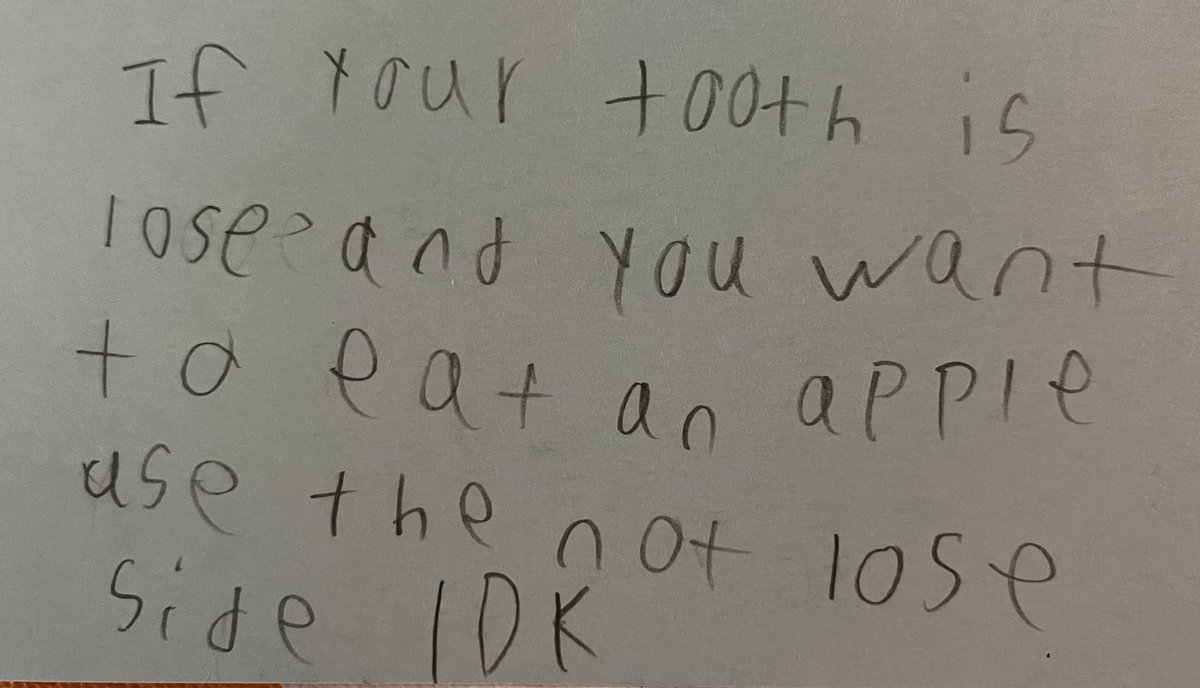 If your tooth is
lose and you want
to eat an apple
use the not lose
side IDK